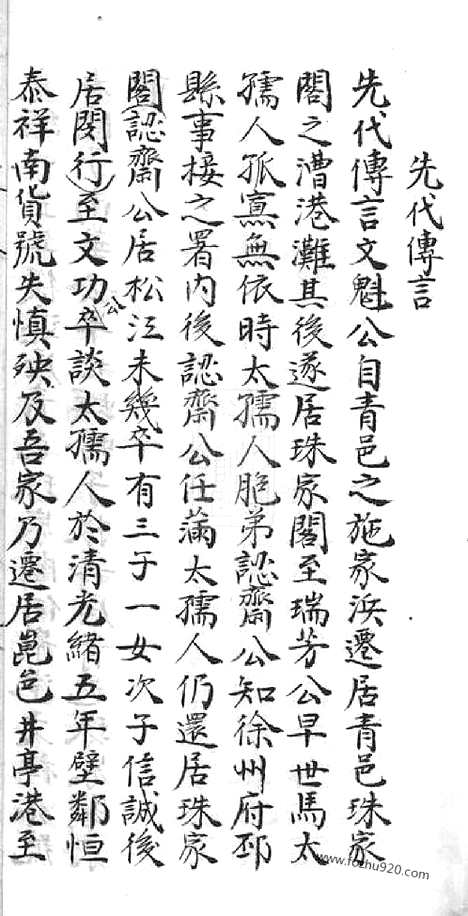 先代傳言
先代傳言文魁公自青邑之施家浜遷居青邑珠家
閣之漕港灘其後遂居珠家閣至瑞芳公早世馬太
孺人孤寡無依時太孺人胞弟認齋公知徐州府邳
縣事接之署内後認齋公任滿太孺人仍還居珠家
閣認齋公居松江未幾卒有三子一女次子信誠後
居閔行至文功公卒談太孺人於清光緒五年壁鄰恒
泰祥南貨號失慎殃及吾家乃遷居崑邑井亭港至
www.fozhu920.com